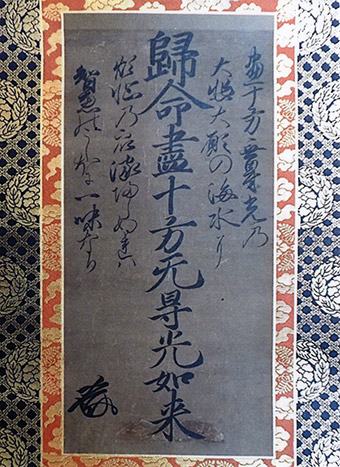 尽十方無㝵光乃
大悲大願の海水に
歸命盡十方无㝵光如来
煩悩乃衆流帰しぬれハ
智慧のうしほに一味なり